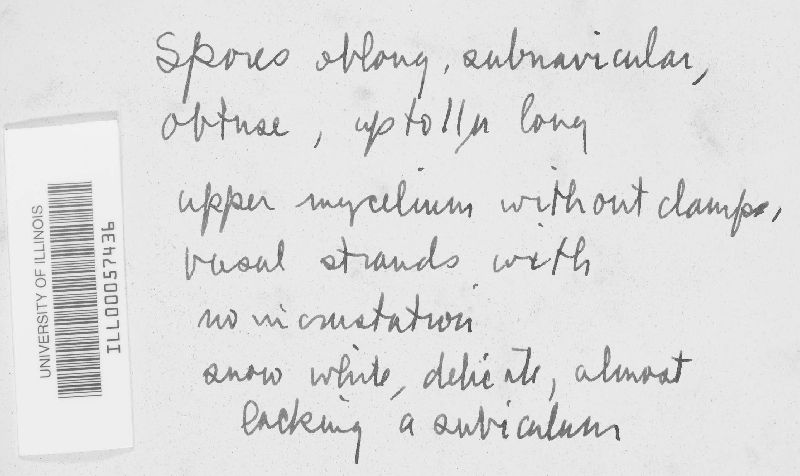 Spores oblong, subnavicular,
obtuse, up to 11 µ long
upper mycelium without clamps,
basal strands with
no incrustation
snow white, delicate, almost
lacking a subiculum
UNIVERSITY OF ILLINOIS
ILL00057436